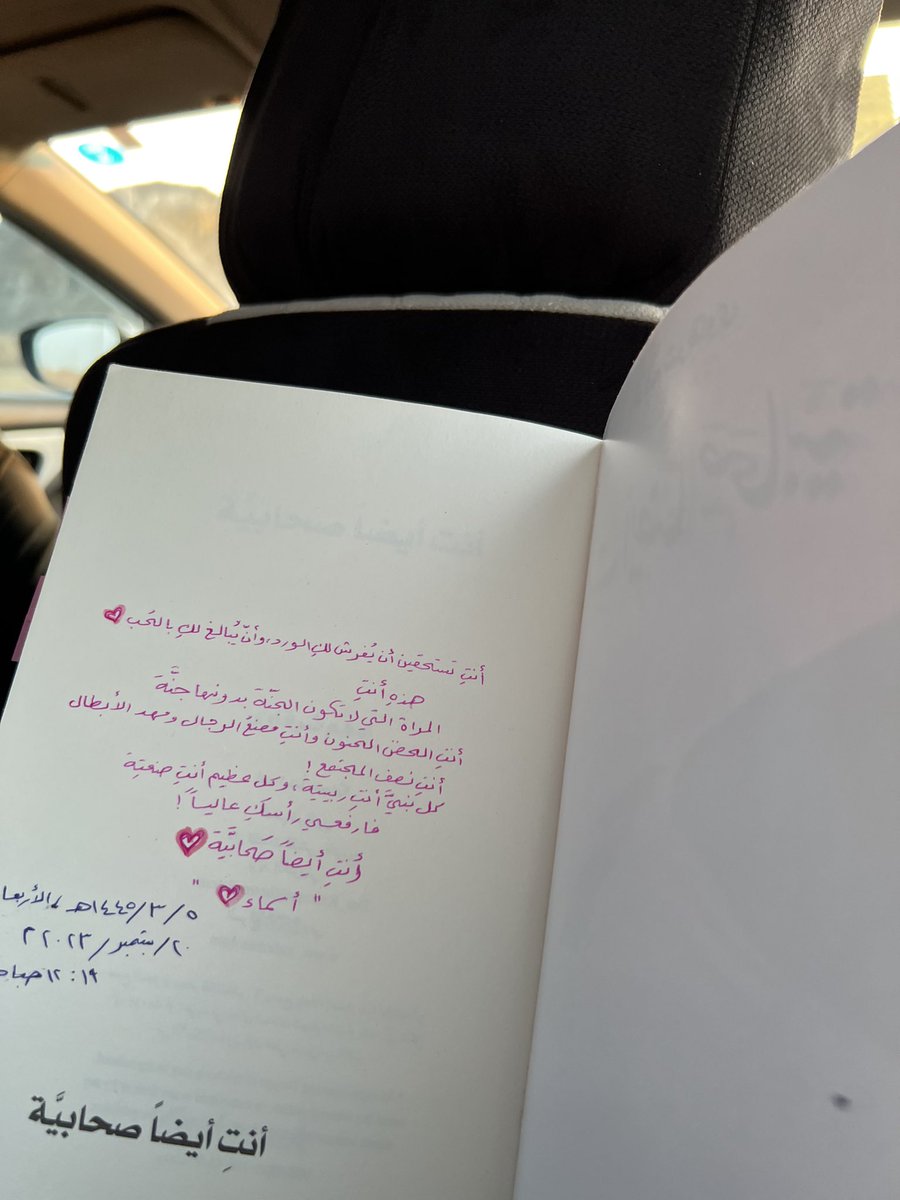 أنتِ تستحقين أن يُفرش لكِ الورد، وأنّ يُبالغ لكِ بالحُب
هذهِ أنتِ
المرأة التي لا تكون الجنّة بدونها جنَّةَ
أنتِ الحضن الحنون وأنتِ مصنعُ الرجال ومهد الأبطال
أنتِ نصف المجتمع !
كل نبيَّ أنتِ ربيتِة، وكل عظيم أنتِ صنعتِة
فارفعي رأسكِ عالياً !
أنتِ أيضاً صَحابيَّة
" أسماء "
٥/٣/١٤٤٥هـ الأربعا
٢٠/سبتمبر/٢٠٢٣م
١٢:١٩ صباح
أنتِ أيضاً صحابيَّة